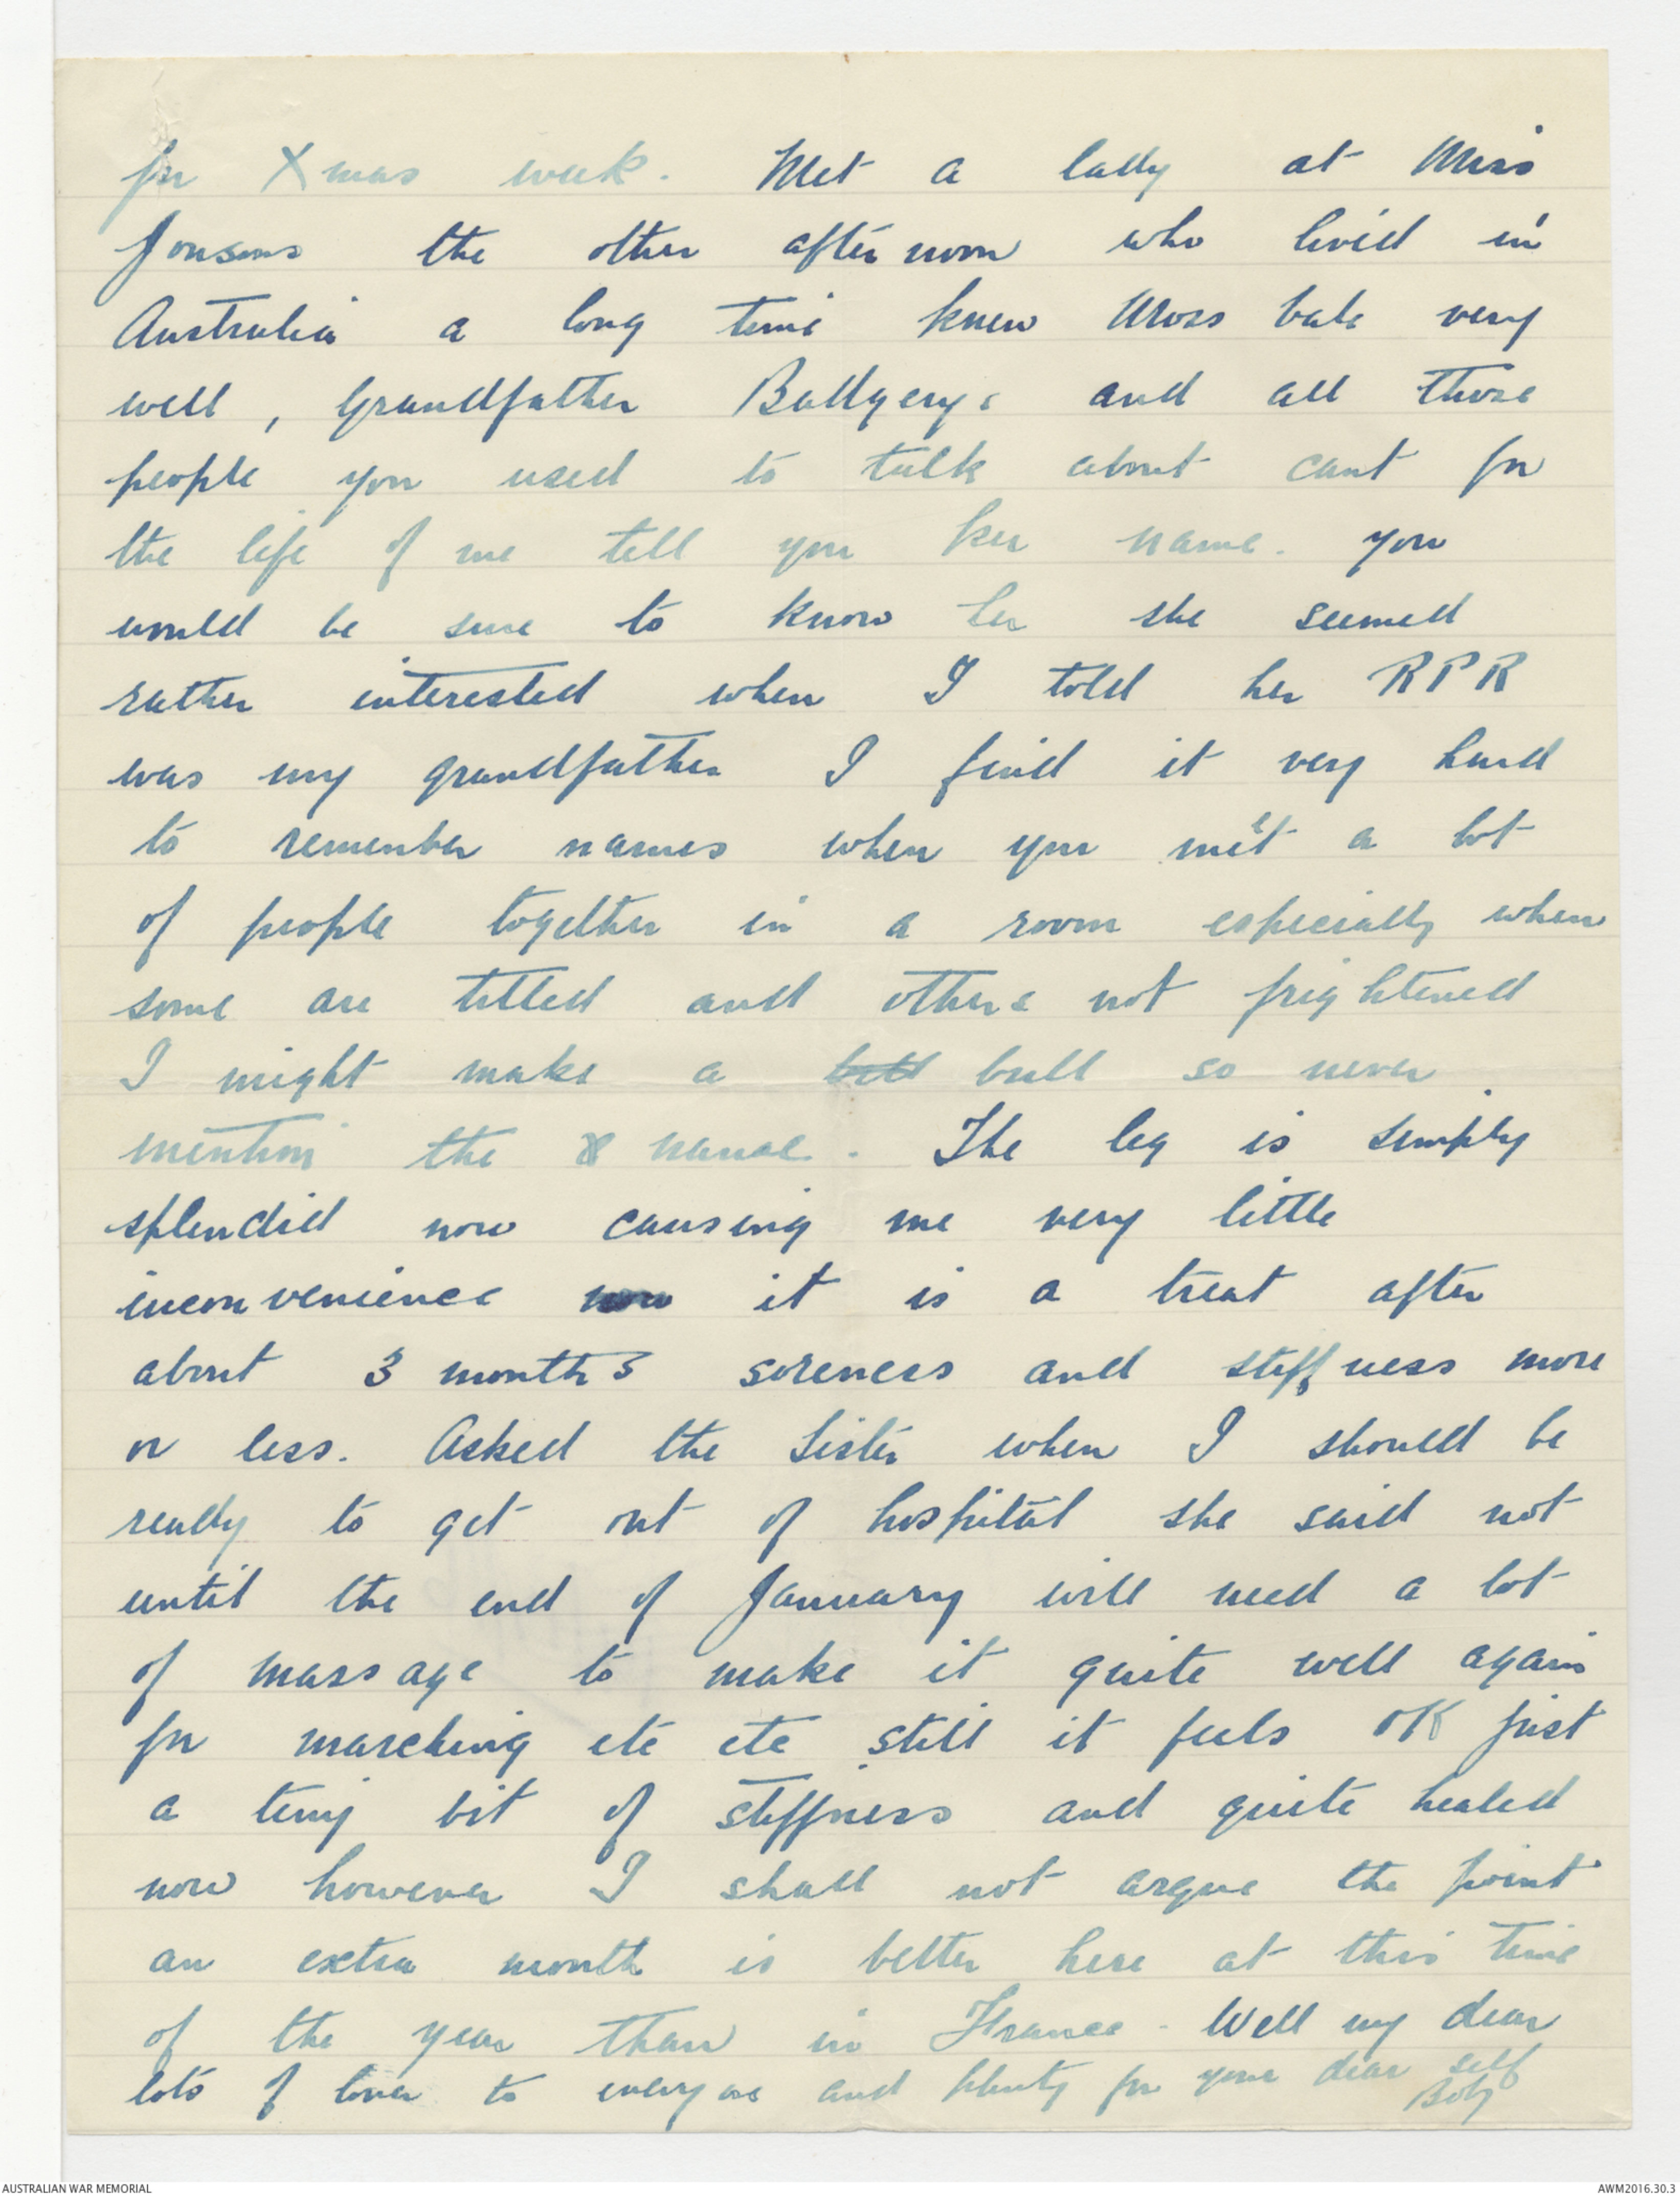 for Xmas week. Met a lady at Miss
Jonsons the other afternoon who lived in
Australia a long time knew Moss vale very
well, Grandfather Badgerys and all those
people you used to talk about cant for
the life of me tell you her name. you
would be sure to know her she seemed
rather interested when I told her RPR
was my grandfather I find it very hard
to remember names when you meet a lot
of people together in a room especially when
some are titled and others not frightened
I might make a bull so never
mention the name. The leg is simply
splendid now causing me very little
inconvenience now it is a treat after
about 3 months soreness and stiffness more
or less. Asked the Sister when I should be
ready to get out of hospital she said not
until the end of January will need a lot
of massage to make it quite well again
for marching etc etc still it feels OK just
a tiny bit of stiffness and quite healed
now however I shall not argue the point
an extra month is better here at this time
of the year than in France - Well my dear
lots of love to everyone and plenty for your dear self
Boy
AUSTRALIAN WAR MEMORIAL
AWM2016.30.3